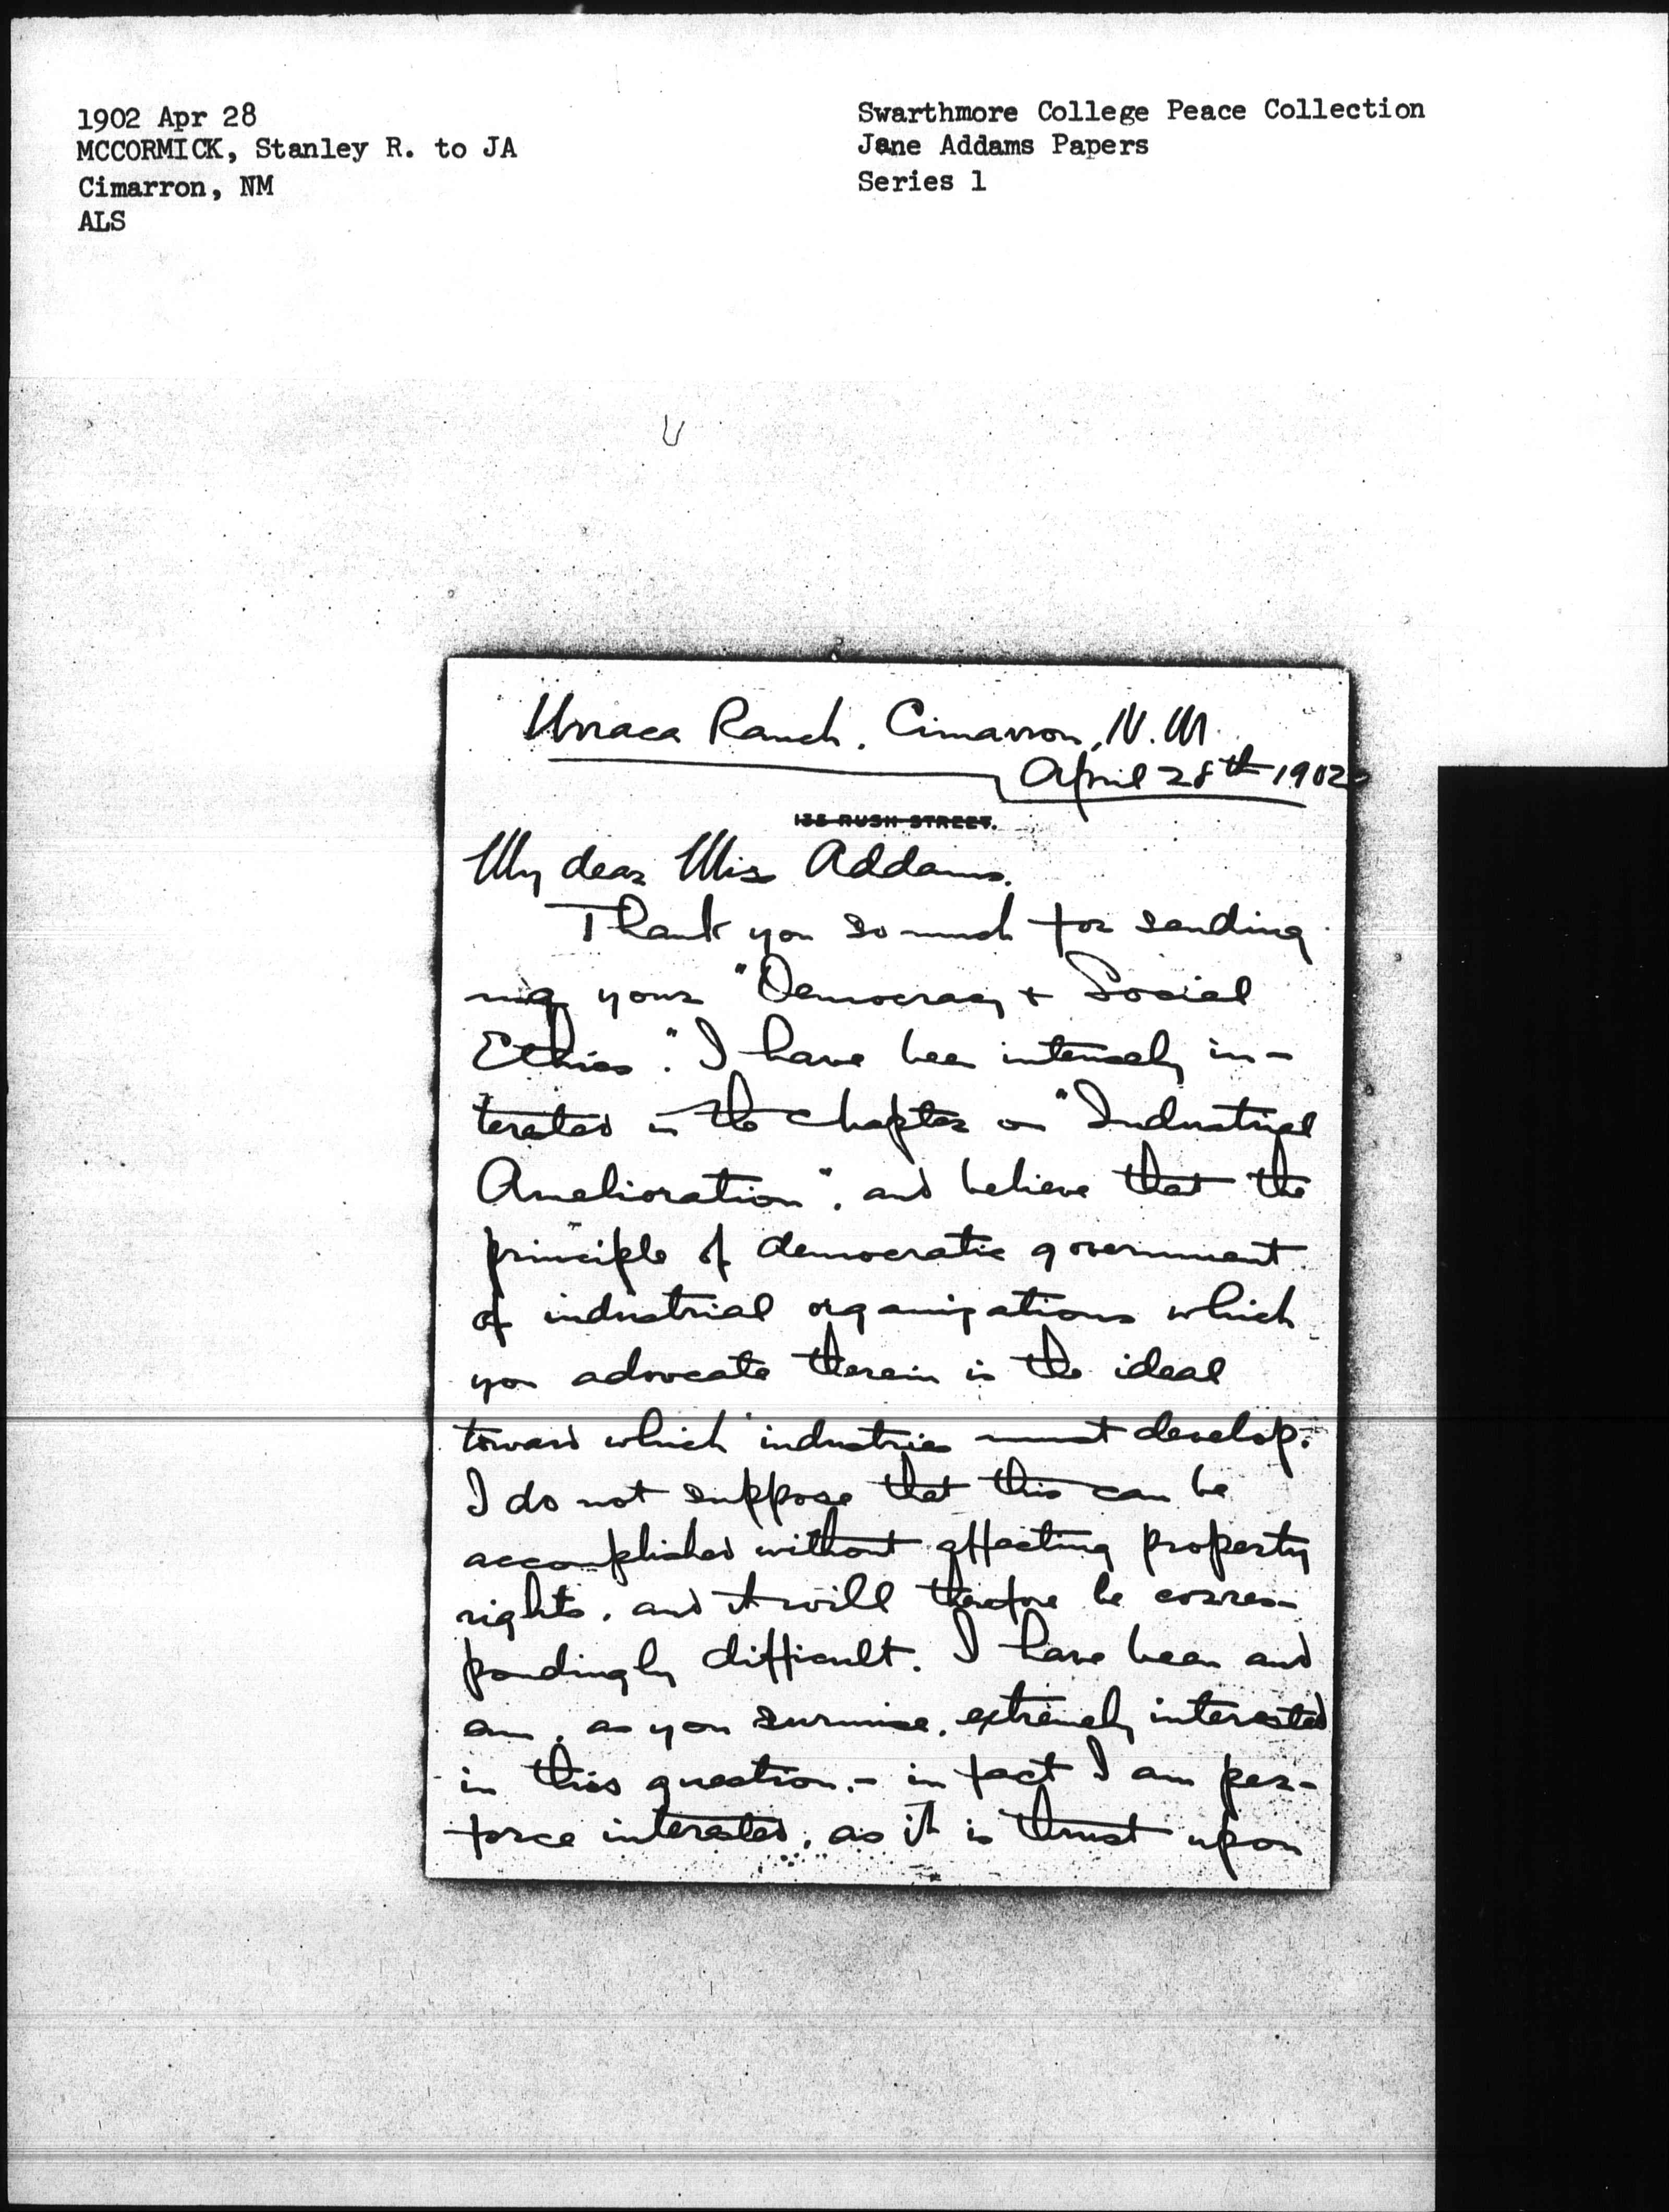 1902 Apr 28
MCCORMICK, Stanley R. to JA
Cimarron, NM
ALS
Swarthmore College Peace Collection
Jane Addams Papers
Series 1
Urraca Ranch, Cimarron, N.M.
April 28th 1902
135 RUSH STREET.
My dear Miss Addams.
Thank you so much for sending
me your "Democracy + Social
Ethics". I have been intensely in-
terested in the chapter on "Industrial
Amelioration", and believe that the
principle of democratic government
of industrial organizations which
you advocate therein is the ideal
toward which industries must develop.
I do not suppose that this can be
accomplished without affecting property
rights, and it will therefore be corres-
pondingly difficult. I have been and
am, as you surmise, extremely interested
in this question,- in fact I am per-
force interested, as it is thrust upon